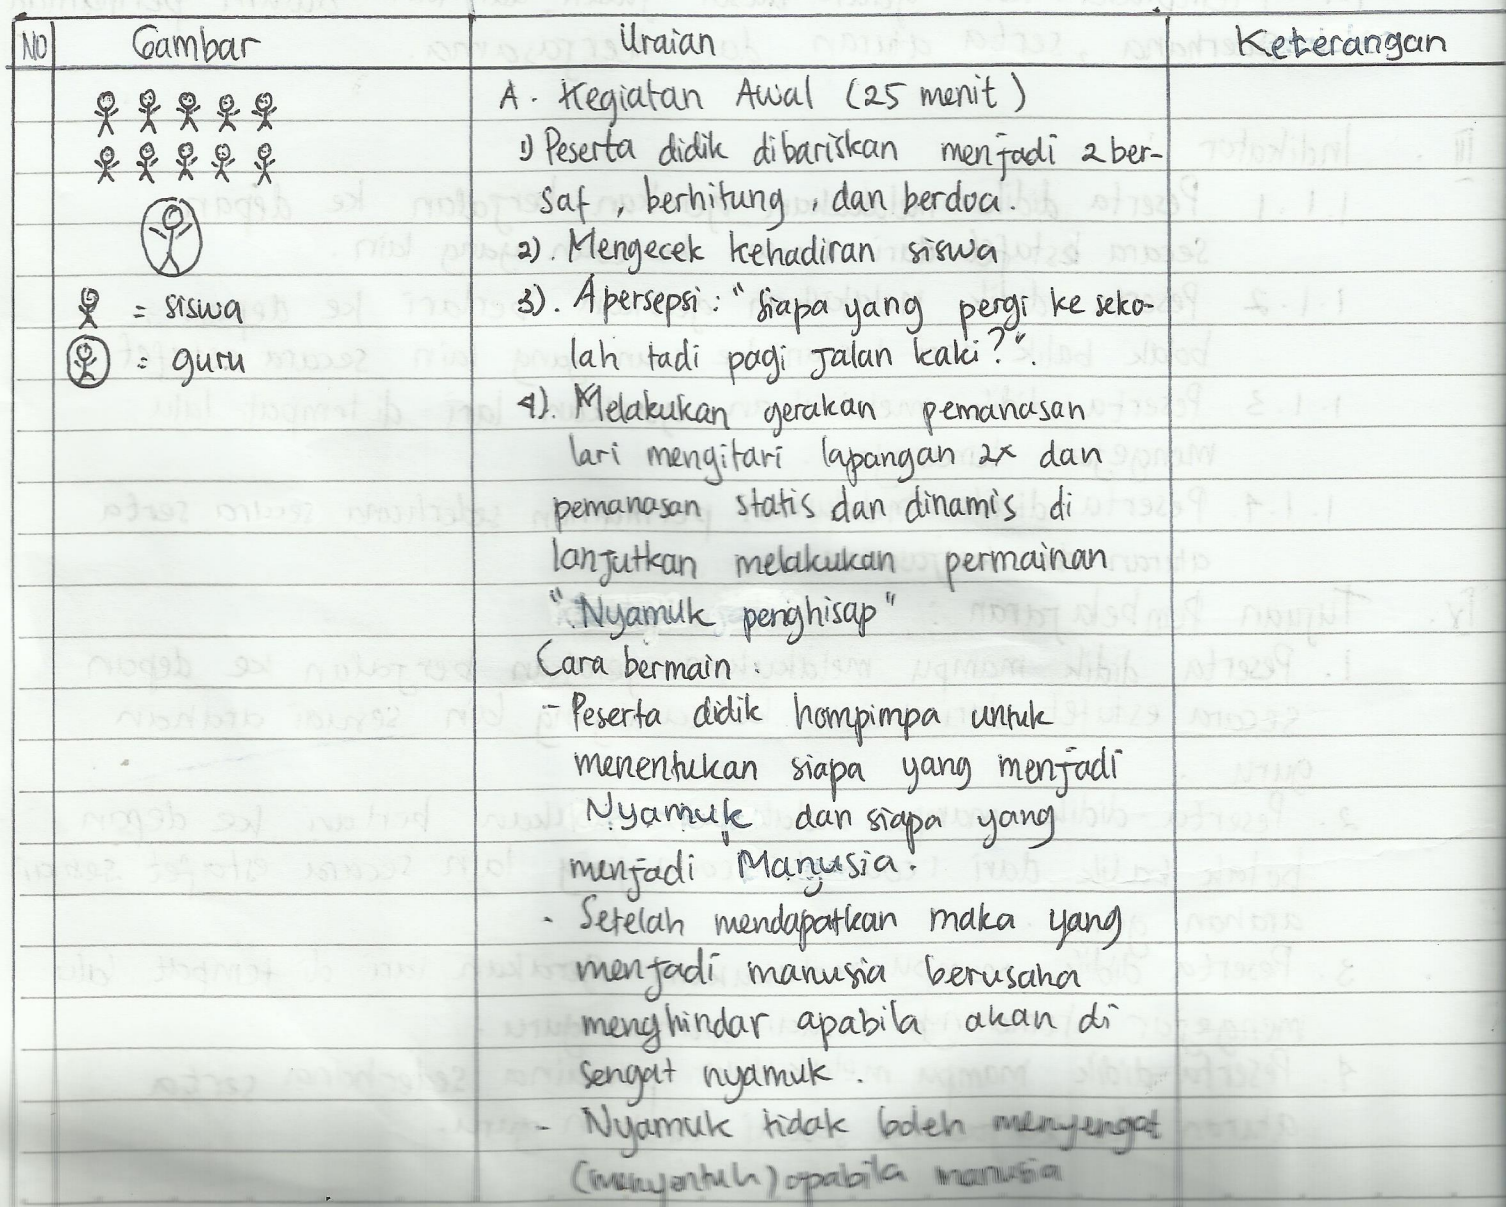 NO Gambar Uraian Keterangan
A. Kegiatan Awal (25 menit)
1) Peserta didik dibariskan menjadi 2 ber-
saf, berhitung, dan berdoa.
2). Mengecek kehadiran siswa
3). Apersepsi: "Siapa yang pergi ke seko-
lah tadi pagi jalan kaki?".
4). Melakukan gerakan pemanasan
lari mengitari lapangan 2x dan
pemanasan statis dan dinamis di
lanjutkan melakukan permainan
"Nyamuk penghisap"
Cara bermain :
- Peserta didik hompimpa untuk
menentukan siapa yang menjadi
Nyamuk dan siapa yang
menjadi Manusia.
- Setelah mendapatkan maka yang
menjadi manusia berusaha
menghindar apabila akan di
sengat nyamuk.
- Nyamuk tidak boleh menyengat
(menyentuh) apabila manusia
= siswa
= guru